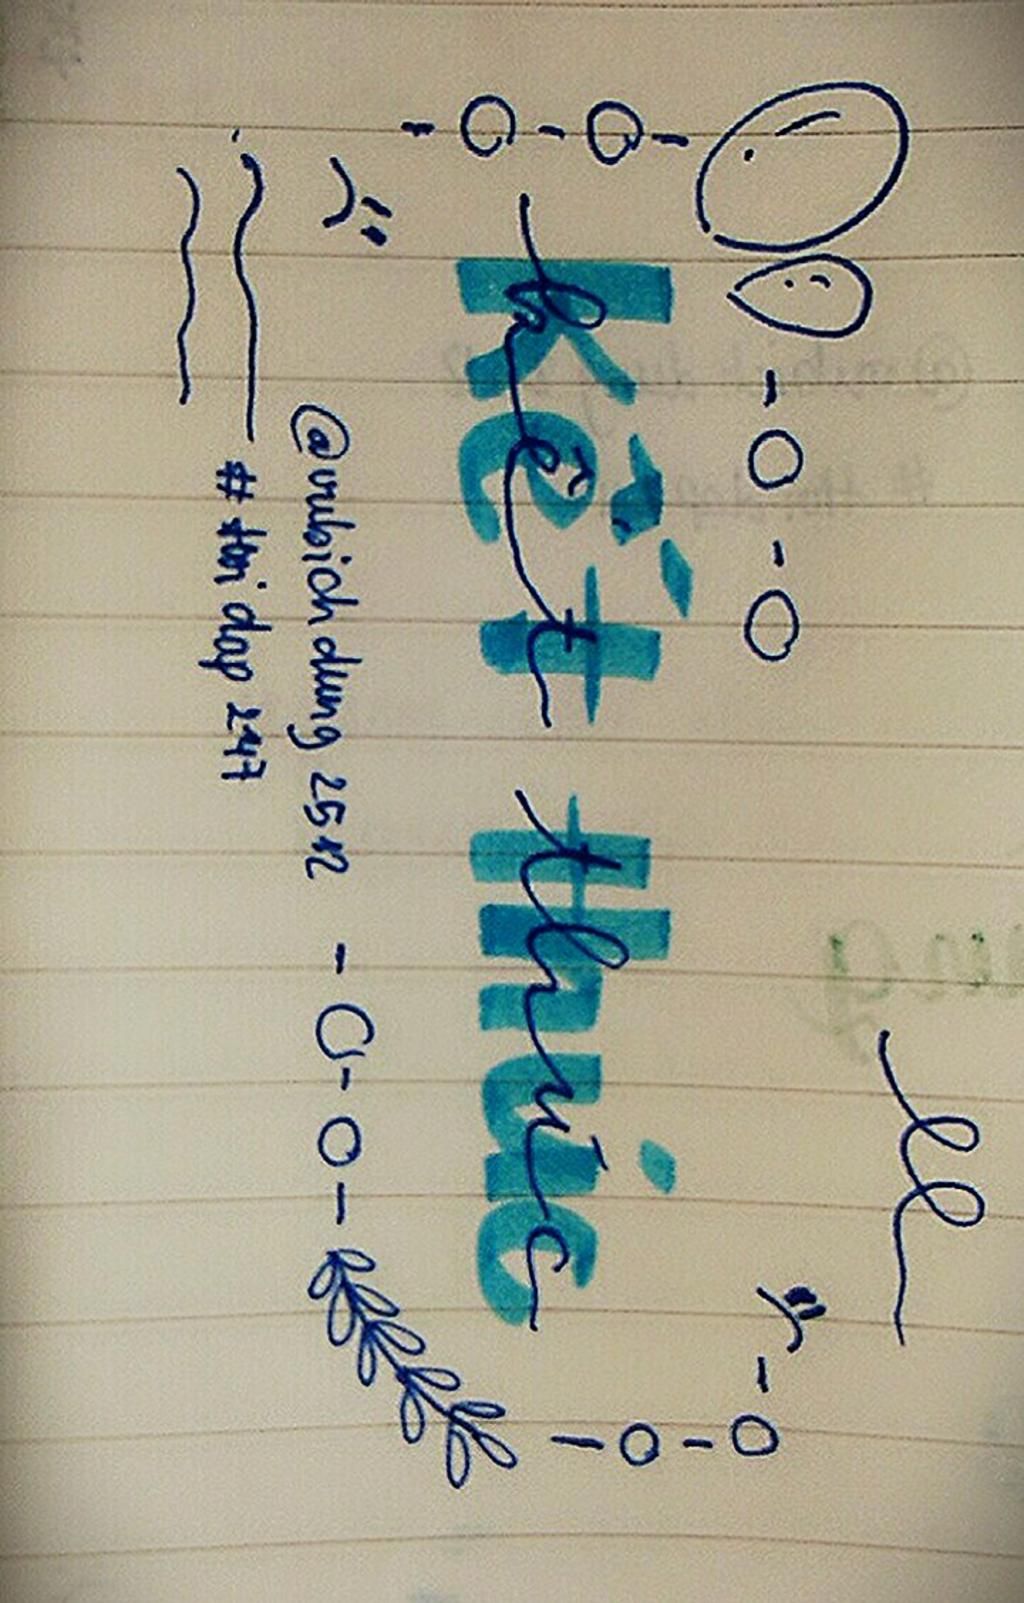 Kết thúc
@vubichdung2512
#hoi dap 247